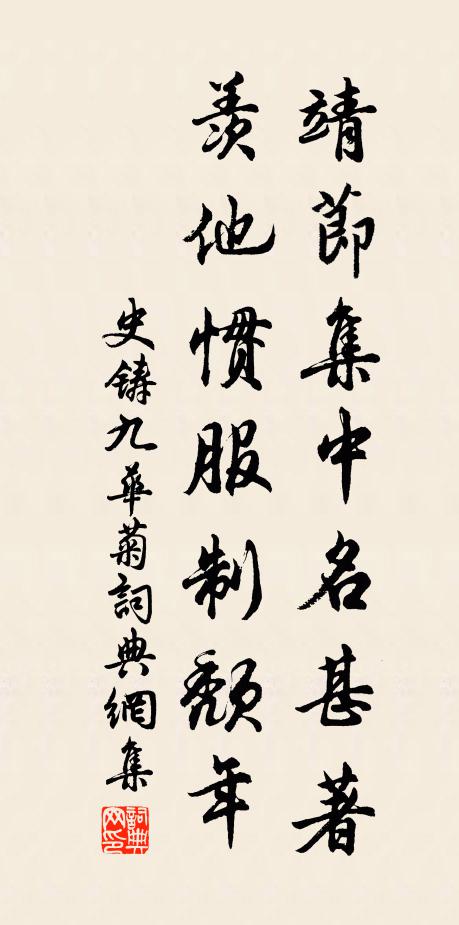 靖節集中名甚著
羨他慣服制頹年
史鑄九華菊詞典網集
詞典网印